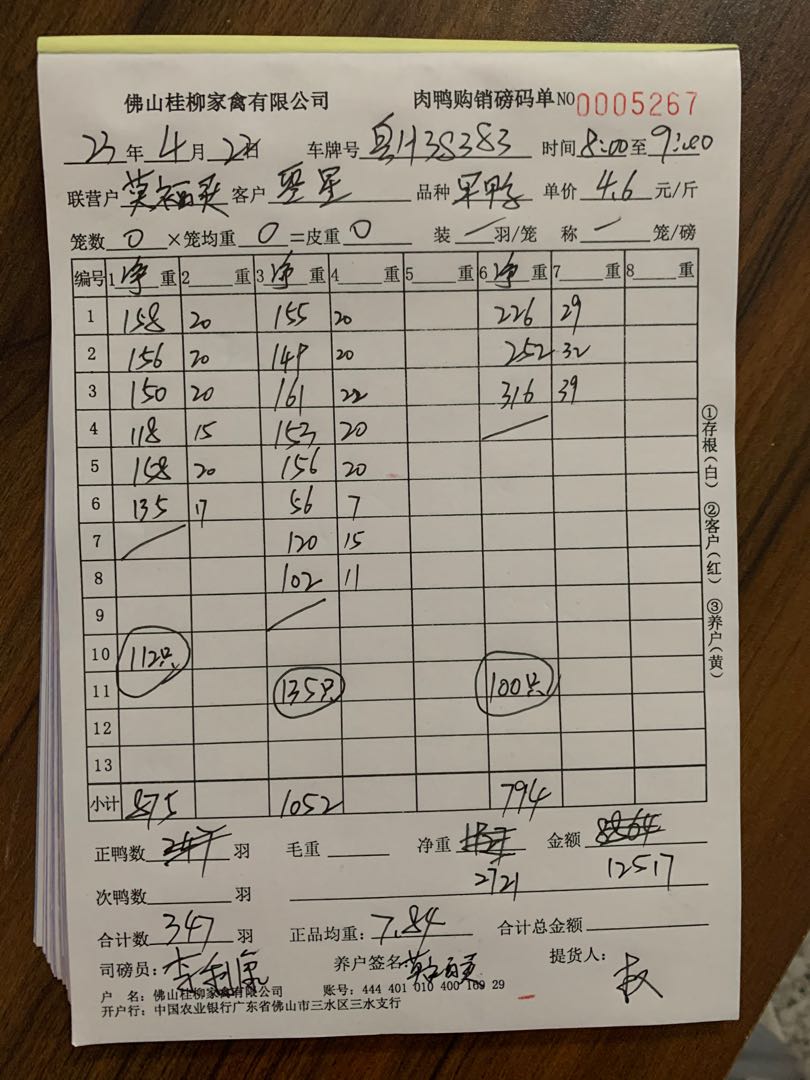 佛山桂柳家禽有限公司 肉鸭购销磅码单 NO 0005267
23年 4月 22日 车牌号 粤H38383 时间 8:00至9:00
联营户 莫福灵 客户 坚星 品种 单价 4.6 元/斤
笼数 0 ×笼均重 0 =皮重 0 装 / 羽/笼 称 / 笼/磅
编号 1 净 重 2 重 3 净 重 4 重 5 重 6 净 重 7 重 8 重
1 158 20 155 20 226 29
2 156 20 149 20 252 32
3 150 20 161 22 316 39
4 118 15 153 20 /
5 158 20 156 20
6 135 17 56 7
7 / 120 15
8 102 11
9 /
10 112只
11 135只 100只
12
13
小计 875 1052 794
正鸭数 247 羽 毛重 净重 金额 8864
次鸭数 羽 2721 12517
合计数 347 羽 正品均重: 7.84 合计总金额
司磅员: 养户签名 提货人:
户 名: 佛山桂柳家禽有限公司 账号: 444 401 010 400 169 29
开户行: 中国农业银行广东省佛山市三水区三水支行
①存根(白) ②客户(红) ③养户(黄)